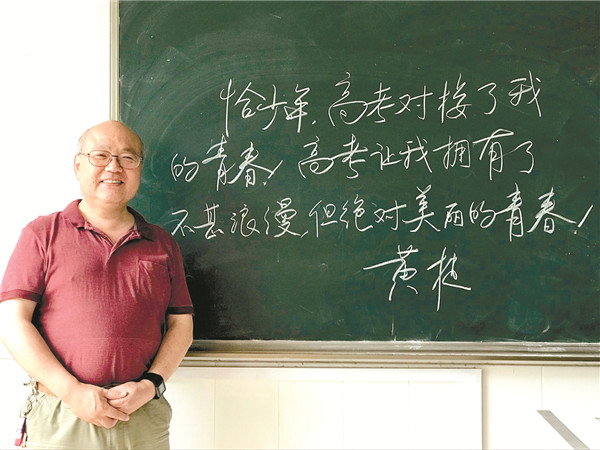 恰少年,高考对接了我
的青春!高考让我拥有了
不甚浪漫,但绝对美丽的青春!
黄植